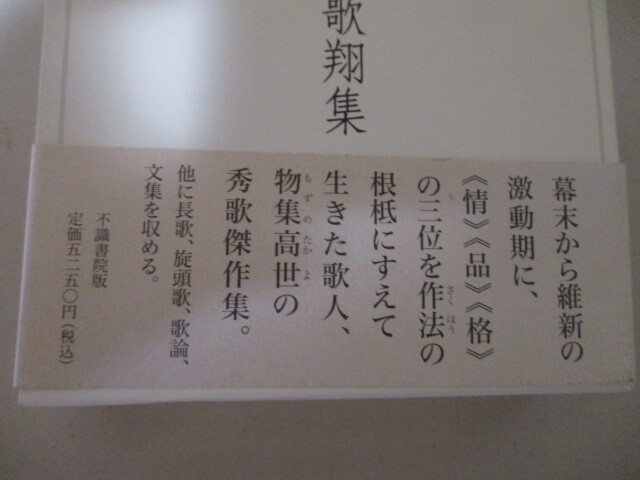 歌翔集
幕末から維新の
激動期に、
《情》《品》《格》
の三位を作法の
根柢にすえて
生きた歌人、
物集高世の
秀歌傑作集。
他に長歌、旋頭歌、歌論、
文集を収める。
不識書院版
定価五二五〇円(税込)